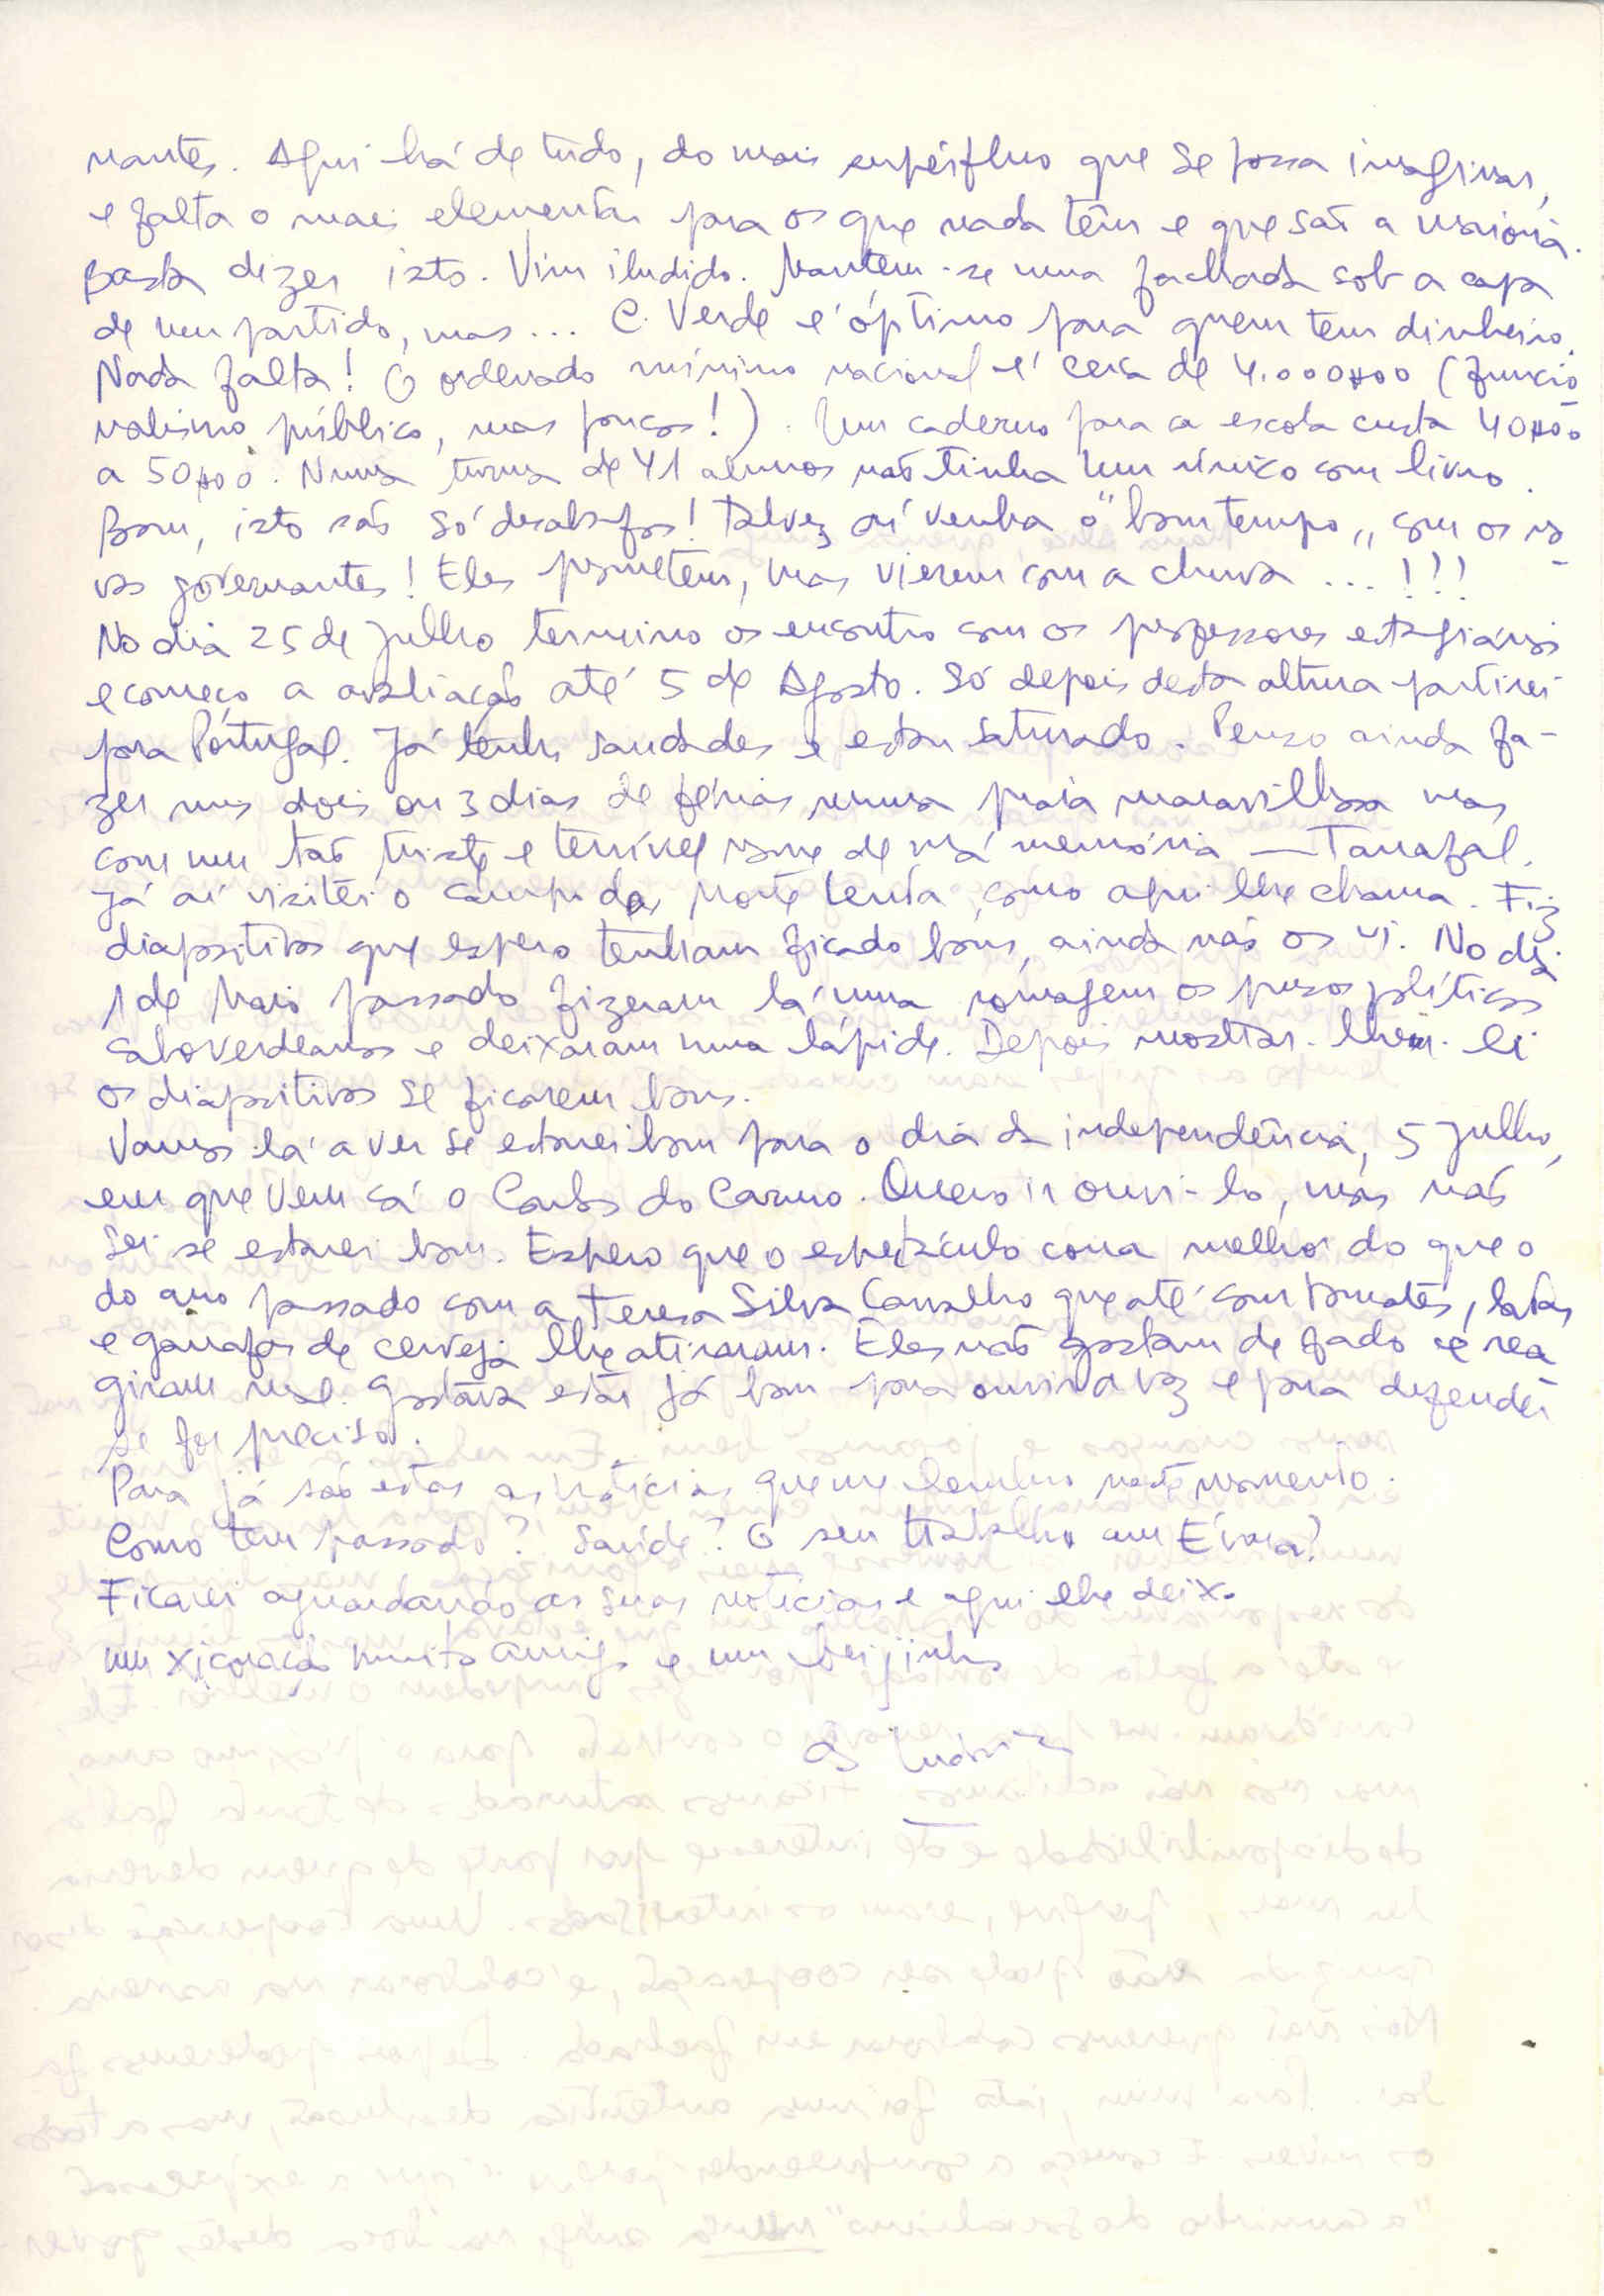 nantes. Aqui há de tudo, do mais supérfluo que se possa imaginar,
e falta o mais elementar para os que nada têm e que são a maioria.
Basta dizer isto. Vim iludido. Mantém-se uma fachada sob a capa
de um partido, mas... C. Verde é óptimo para quem tem dinheiro.
Nada falta! O ordenado mínimo nacional é cerca de 4.000$00 (funcio
nalismo público, mas poucos!). Um caderno para a escola custa 40$00
a 50$00. Numa turma de 41 alunos não tinha um único com livro.
Bom, isto são só desabafos! Talvez aí venha o "bom tempo" com os no
vos governantes! Eles prometem, mas vierem com a chuva ...!!!
No dia 25 de Julho termino os encontro com os professores estagiários
e começo a avaliação até 5 de Agosto. Só depois desta altura partirei
para Portugal. Já tenho saudades e estou saturado. Penso ainda fa-
zer uns dois ou 3 dias de férias numa praia maravilhosa mas
com um tão triste e terrível nome de má memória — Tarrafal.
Já aí visitei o campo da Morte Lenta, como aqui lhe chama. Fiz
diapositivos que espero tenham ficado bons, ainda não os vi. No dia
1 de Maio passado fizeram lá uma romagem os presos políticos
caboverdeanos e deixaram uma lápide. Depois mostrar-lhe-ei
os diapositivos se ficarem bons.
Vamos lá a ver se estarei bom para o dia da independência, 5 Julho,
em que vem cá o Carlos do Carmo. Quero ir ouvi-lo, mas não
sei se estarei bom. Espero que o espectáculo corra melhor do que o
do ano passado com a Teresa Silva Carvalho que até com tomates, latas
e garrafas de cerveja lhe atiraram. Eles não gostam de fado e rea
giram mal. Gostava estar já bom para ouvir a voz e para defender
se for preciso.
Para já são estas as notícias que me lembro neste momento.
Como tem passado? Saúde? O seu trabalho em Évora?
Ficarei aguardando as suas notícias e aqui lhe deixo
um xicoração muito amigo e um beijinho